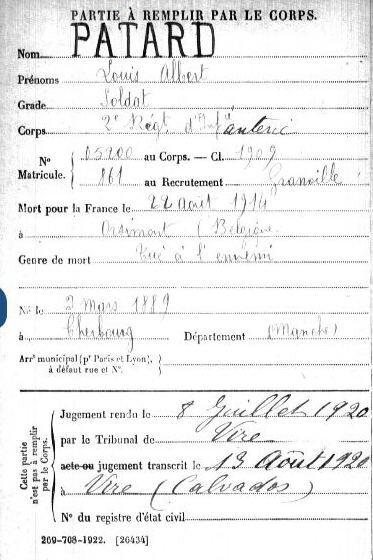 PARTIE À REMPLIR PAR LE CORPS.
Nom PATARD
Prénoms Louis Albert
Grade Soldat
Corps 2e Régt d'Infanterie
N° 05200 au Corps. — Cl. 1909
Matricule. 861 au Recrutement Granville
Mort pour la France le 22 août 1914
à Arsimont (Belgique
Genre de mort Tué à l'ennemi
Né le 2 Mars 1889
à Cherbourg Département (Manche)
Arrt municipal (pr Paris et Lyon), à défaut rue et N°.
Cette partie n'est pas à remplir par le Corps.
Jugement rendu le 8 Juillet 1920
par le Tribunal de Vire
acte ou jugement transcrit le 13 Août 1920
à Vire (Calvados)
N° du registre d'état civil
269-708-1922. [26434]